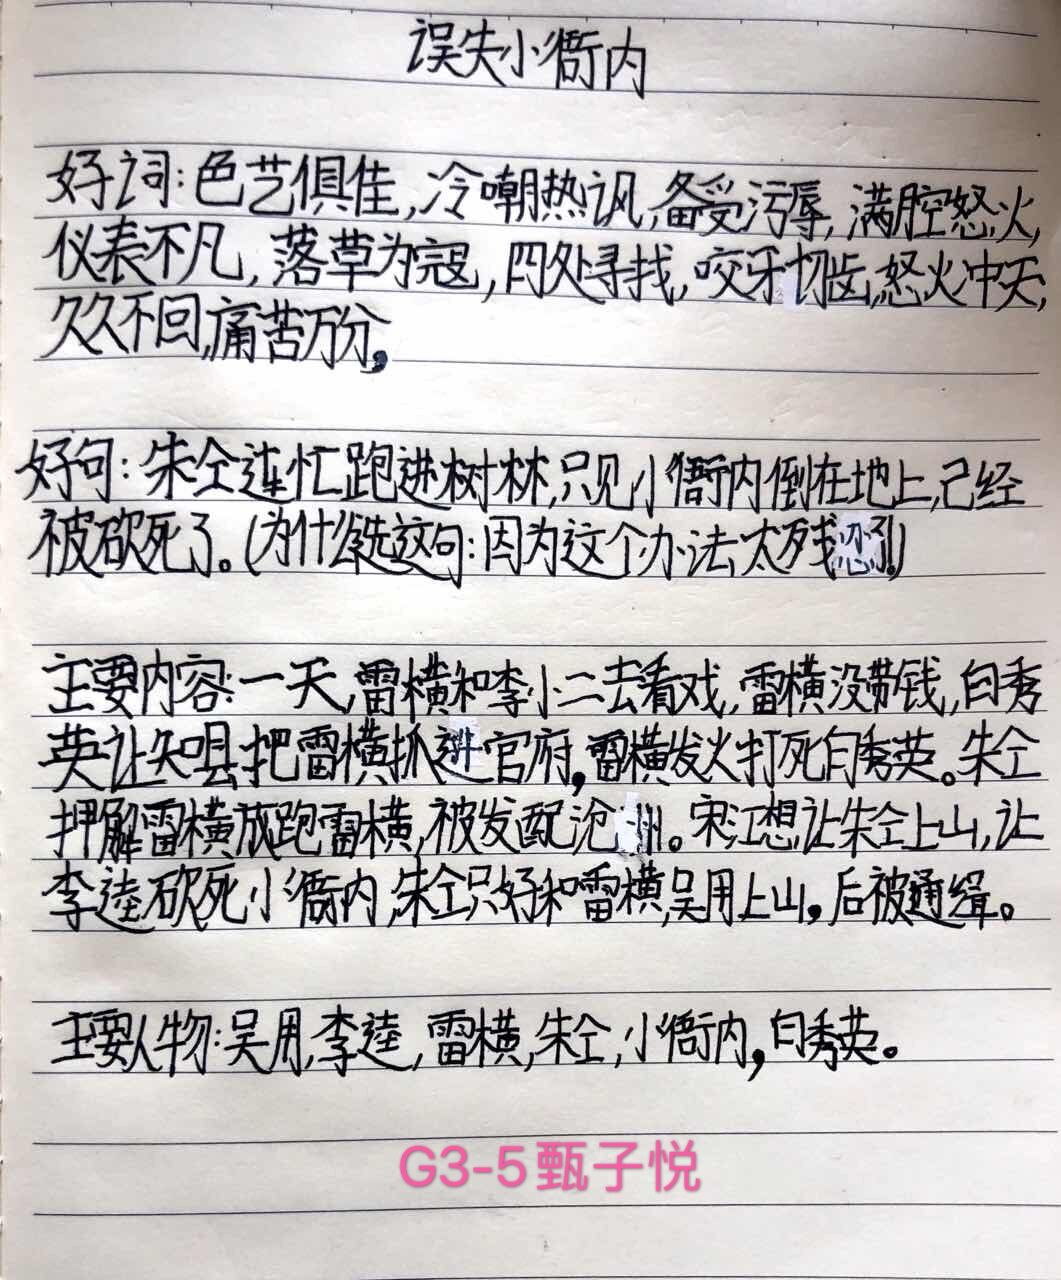 误失小衙内
好词：色艺俱佳，冷嘲热讽，备受污辱，满腔怒火，
仪表不凡，落草为寇，四处寻找，咬牙切齿，怒火冲天，
久久不回，痛苦万分，
好句：朱仝连忙跑进树林，只见小衙内倒在地上，已经
被砍死了。（为什么选这句：因为这个办法太残忍了！）
主要内容：一天，雷横和李小二去看戏，雷横没带钱，白秀
英让知县把雷横抓进官府，雷横发火打死白秀英。朱仝
押解雷横放跑雷横，被发配沧州。宋江想让朱仝上山，让
李逵砍死小衙内，朱仝只好和雷横，吴用上山，后被通缉。
主要人物：吴用，李逵，雷横，朱仝，小衙内，白秀英。
G3-5甄子悦